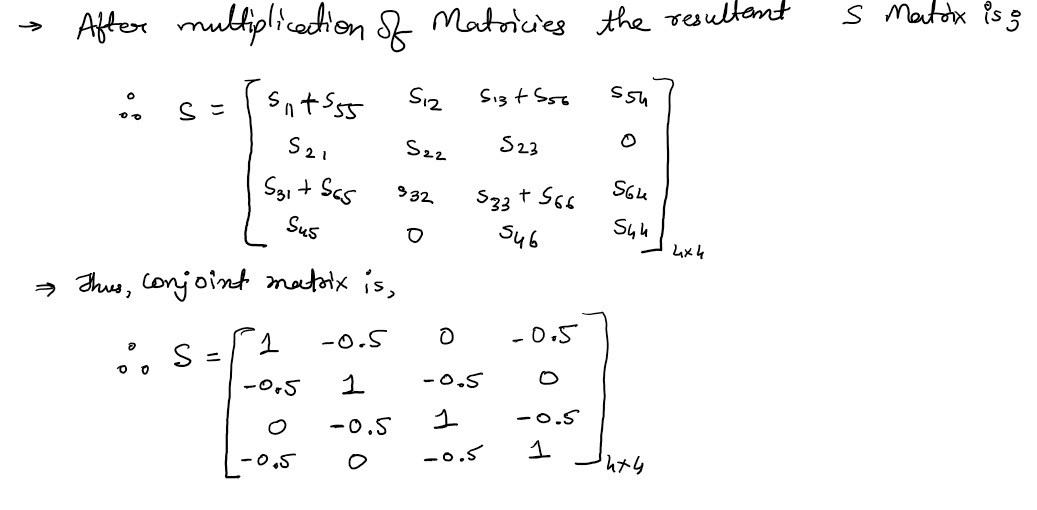 → After multiplication of Matricies the resultant S Matrix is;
∴ S = [ S11+S55 S12 S13+S56 S54
S21 S22 S23 0
S31+S65 S32 S33+S66 S64
S45 0 S46 S44 ]4×4
⇒ Thus, conjoint matrix is,
∴ S = [ 1 -0.5 0 -0.5
-0.5 1 -0.5 0
0 -0.5 1 -0.5
-0.5 0 -0.5 1 ]4×4